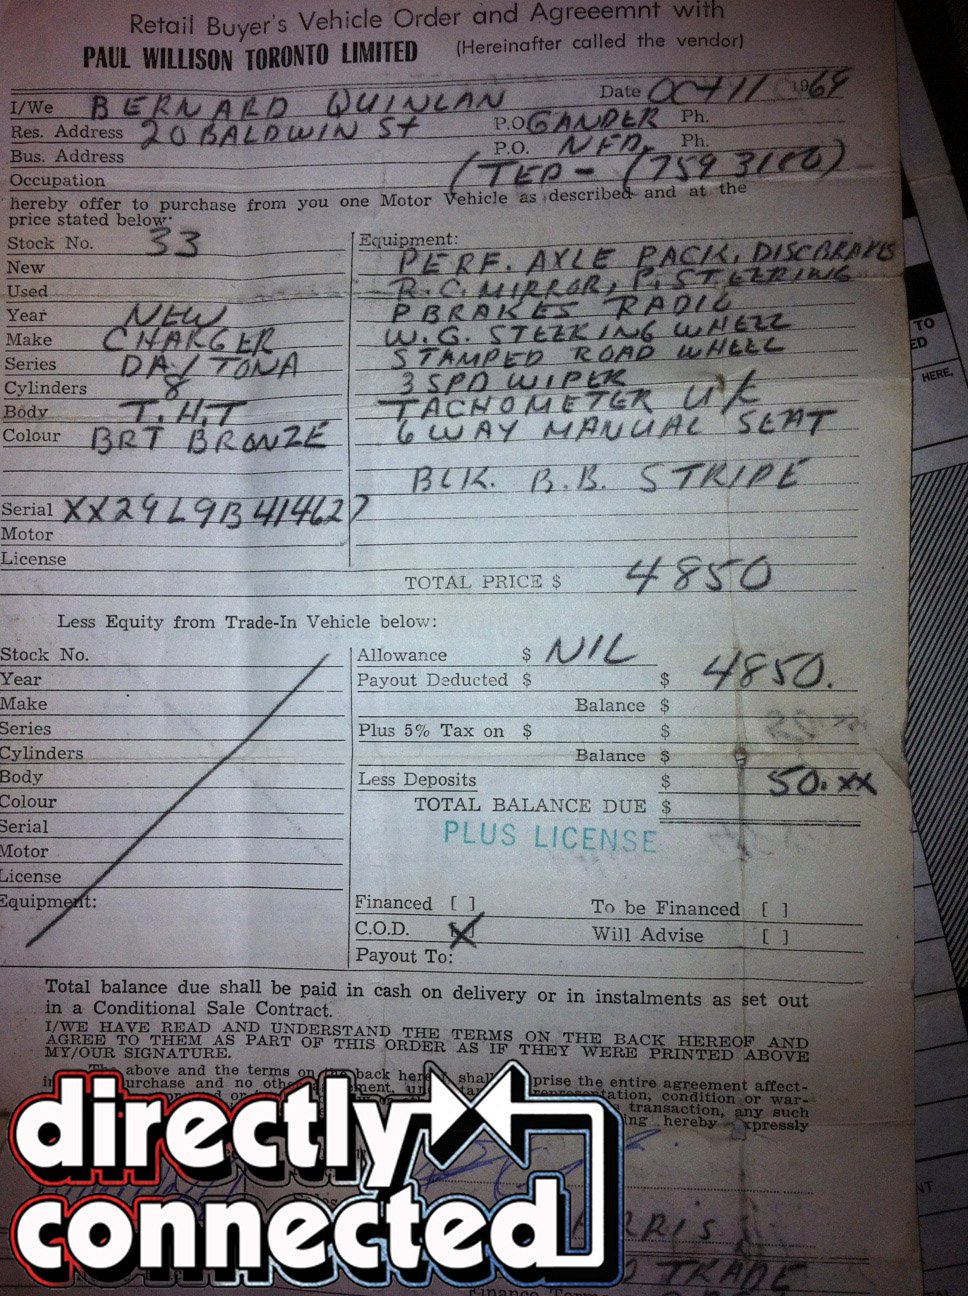 Retail Buyer's Vehicle Order and Agreeemnt with
PAUL WILLISON TORONTO LIMITED (Hereinafter called the vendor)
I/We BERNARD QUINLAN Date OCT 11 1969
Res. Address 20 BALDWIN St P.O. GANDER Ph.
Bus. Address P.O. NFD. Ph.
Occupation (TED - (759 3106)
hereby offer to purchase from you one Motor Vehicle as described and at the
price stated below:
Stock No. 33
New
Used
Year NEW
Make CHARGER
Series DAYTONA
Cylinders 8
Body T.H.T
Colour BRT BRONZE
Serial XX29L9B414627
Motor
License
Equipment:
PERF. AXLE PACK, DISCBRAKES
R.C. MIRROR, P. STEERING
PBRAKES RADIO
W.G. STEERING WHEEL
STAMPED ROAD WHEEL
3 SPD WIPER
TACHOMETER U/C
6 WAY MANUAL SEAT
BLK. B.B. STRIPE
TOTAL PRICE $ 4850
Less Equity from Trade-In Vehicle below:
Stock No.
Year
Make
Series
Cylinders
Body
Colour
Serial
Motor
License
Equipment:
Allowance $ NIL
Payout Deducted $ $ 4850.
Balance $
Plus 5% Tax on $ $
Balance $
Less Deposits $ 50.xx
TOTAL BALANCE DUE $
PLUS LICENSE
Financed [ ] To be Financed [ ]
C.O.D. [X] Will Advise [ ]
Payout To:
Total balance due shall be paid in cash on delivery or in instalments as set out
in a Conditional Sale Contract.
I/WE HAVE READ AND UNDERSTAND THE TERMS ON THE BACK HEREOF AND
AGREE TO THEM AS PART OF THIS ORDER AS IF THEY WERE PRINTED ABOVE
MY/OUR SIGNATURE.
The above and the terms on the back here shall prise the entire agreement affect-
urchase and no othe condition or war-
transaction, any such
ing hereby xpressly
directly
connected
RRIS
TRADE
TO
ED
HERE.
NT